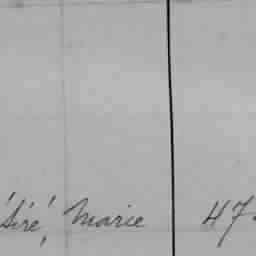 Siré, Marie 47